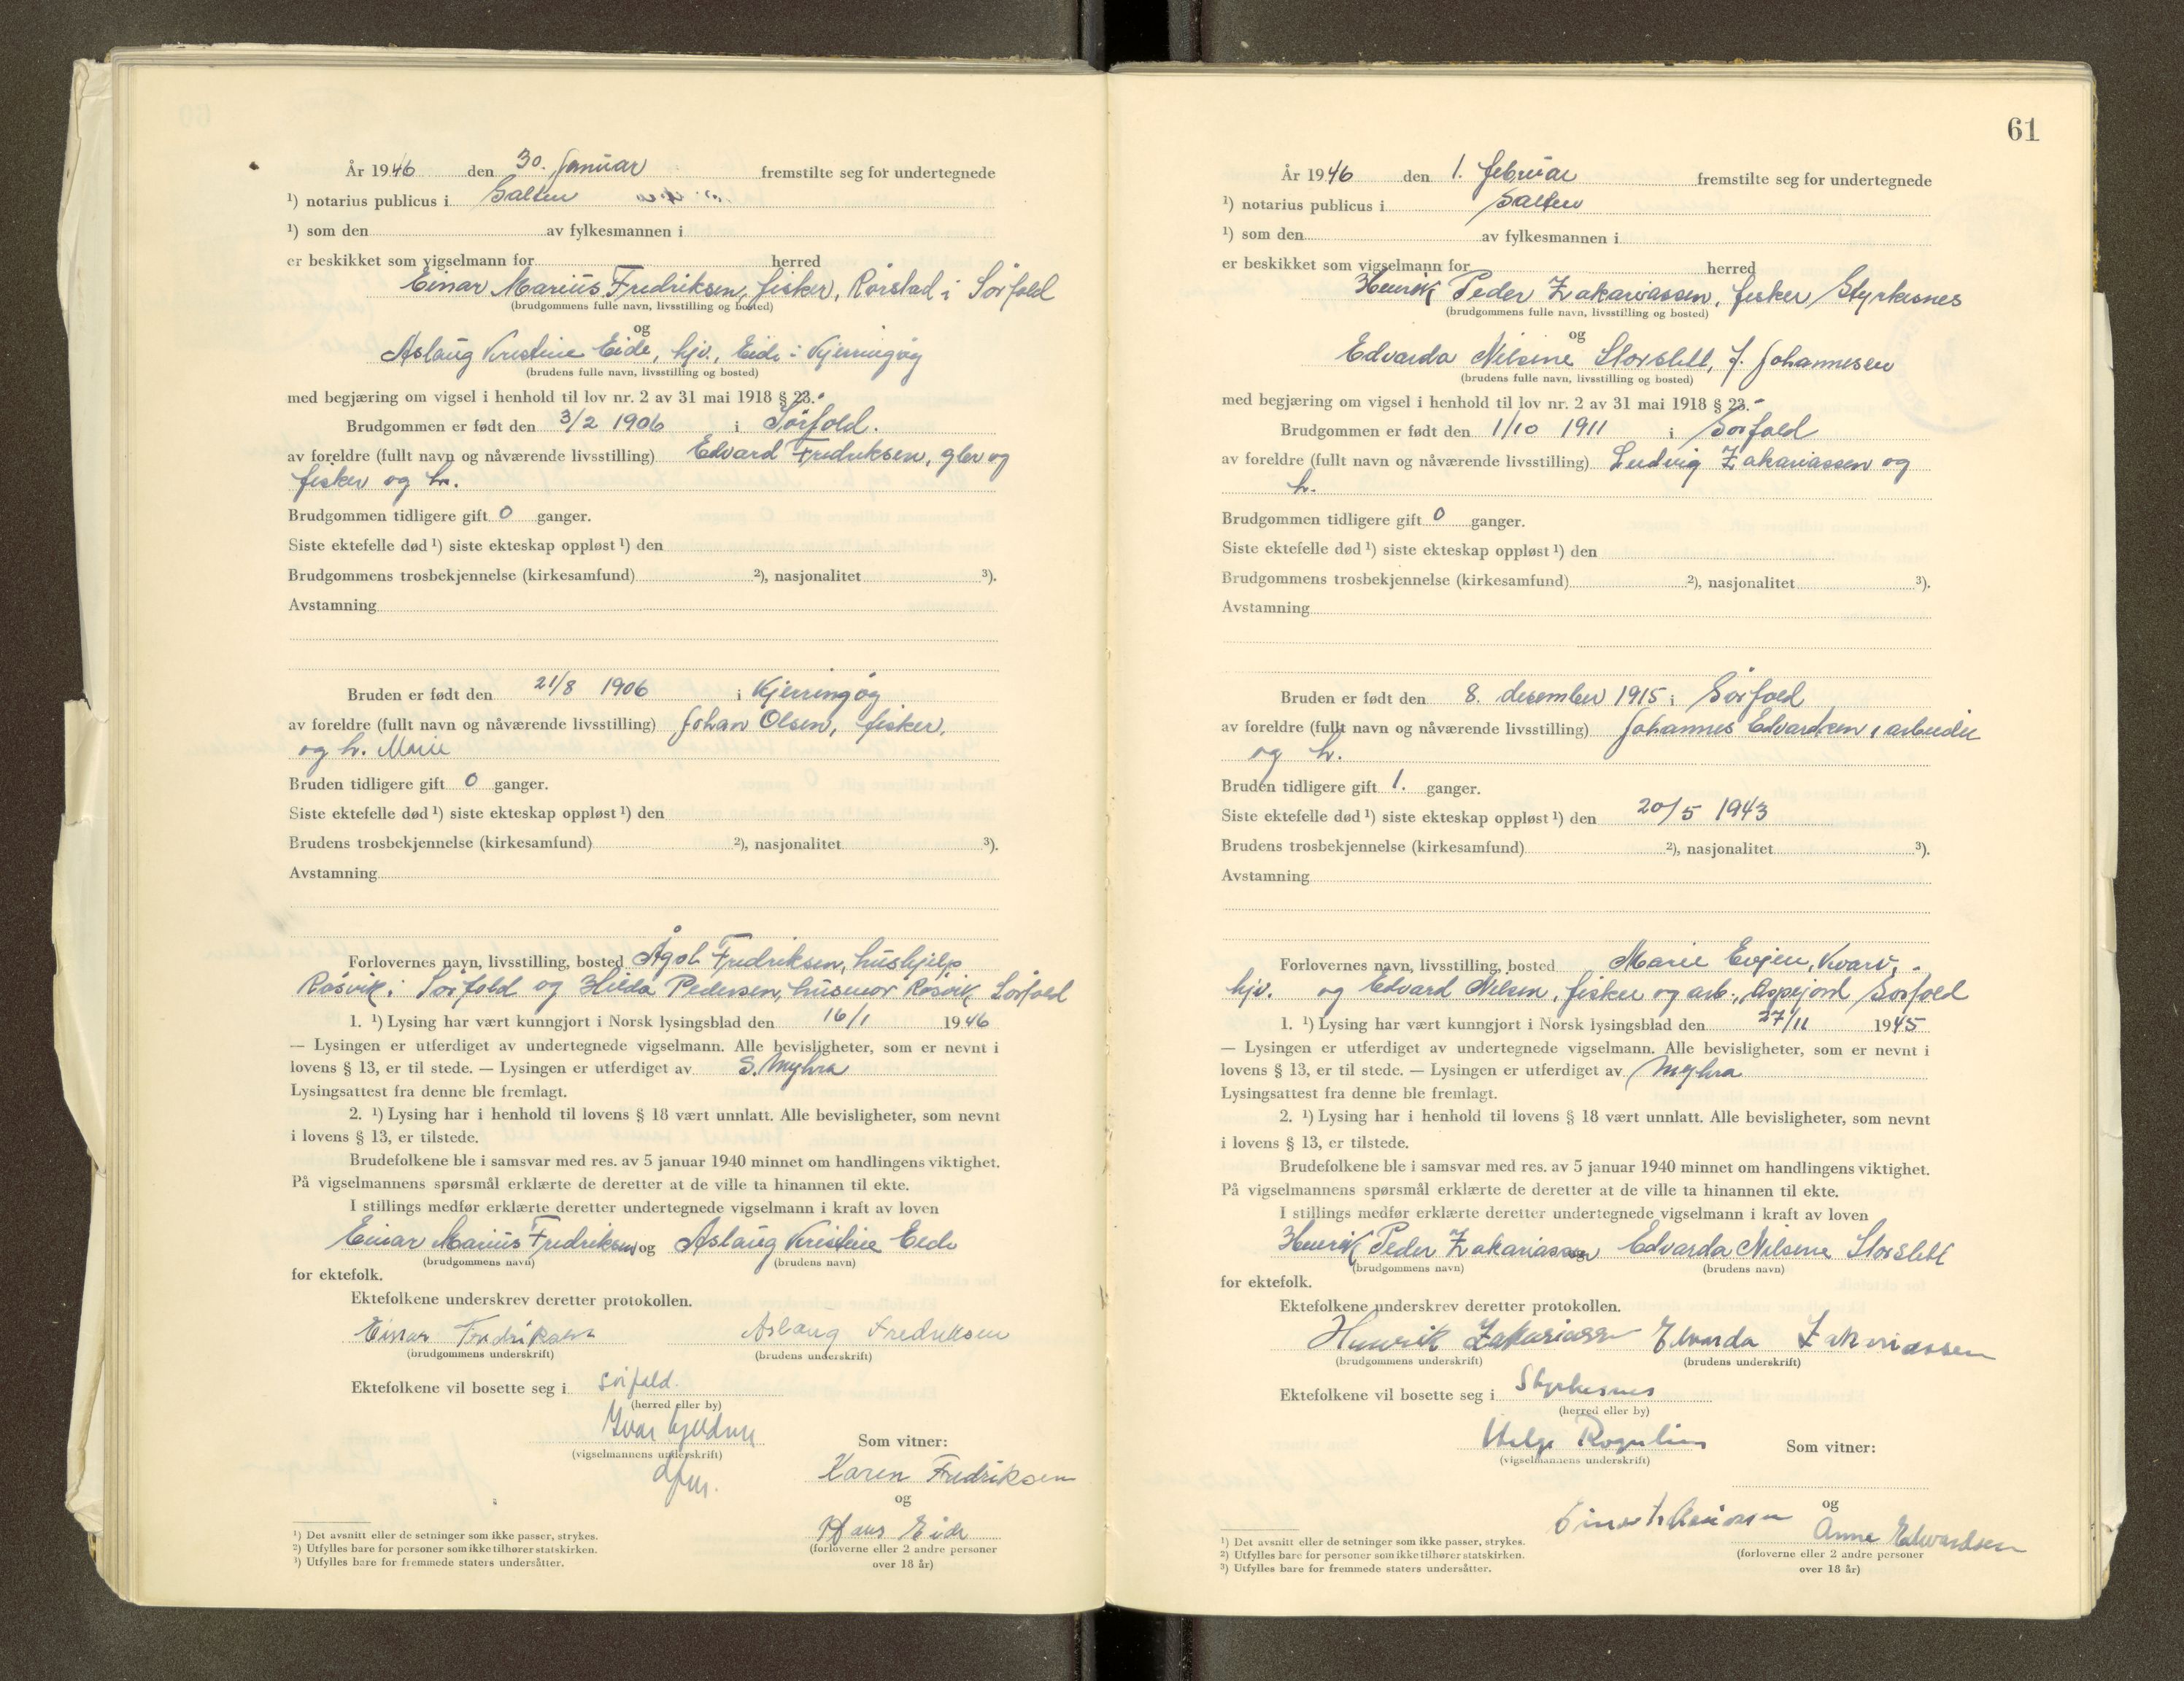 År 1946 den 30. Januar fremstilte seg for undertegnede
¹) notarius publicus i Salten
¹) som den av fylkesmannen i
er beskikket som vigselmann for herred
Einar Marius Fredriksen, fisker, Rørstad i Sørfold
(brudgommens fulle navn, livsstilling og bosted)
og
Aslaug Kristine Eide, hjv., Eide i Kjerringøy
(brudens fulle navn, livsstilling og bosted)
med begjæring om vigsel i henhold til lov nr. 2 av 31 mai 1918 § 23.
Brudgommen er født den 3/2 1906 i Sørfold.
av foreldre (fullt navn og nåværende livsstilling) Edvard Fredriksen, gbr og
fisker og h.
Brudgommen tidligere gift 0 ganger.
Siste ektefelle død ¹) siste ekteskap oppløst ¹) den
Brudgommens trosbekjennelse (kirkesamfund) ²), nasjonalitet ³).
Avstamning
Bruden er født den 21/8 1906 i Kjerringøy
av foreldre (fullt navn og nåværende livsstilling) Johan Olsen, fisker,
og h. Marie
Bruden tidligere gift 0 ganger.
Siste ektefelle død ¹) siste ekteskap oppløst ¹) den
Brudens trosbekjennelse (kirkesamfund) ²), nasjonalitet ³).
Avstamning
Forlovernes navn, livsstilling, bosted Ågot Fredriksen, hushjelp
Røsvik i Sørfold og Hilda Pedersen, husmor Røsvik Sørfold
1. ¹) Lysing har vært kunngjort i Norsk lysingsblad den 16/1 1946
— Lysingen er utferdiget av undertegnede vigselmann. Alle bevisligheter, som er nevnt i
lovens § 13, er til stede. — Lysingen er utferdiget av S. Myhra
Lysingsattest fra denne ble fremlagt.
2. ¹) Lysing har i henhold til lovens § 18 vært unnlatt. Alle bevisligheter, som nevnt
i lovens § 13, er tilstede.
Brudefolkene ble i samsvar med res. av 5 januar 1940 minnet om handlingens viktighet.
På vigselmannens spørsmål erklærte de deretter at de ville ta hinannen til ekte.
I stillings medfør erklærte deretter undertegnede vigselmann i kraft av loven
Einar Marius Fredriksen og Aslaug Kristine Eide
(brudgommens navn) (brudens navn)
for ektefolk.
Ektefolkene underskrev deretter protokollen.
Einar Fredriksen Aslaug Fredriksen
(brudgommens underskrift) (brudens underskrift)
Ektefolkene vil bosette seg i Sørfold.
(herred eller by)
Ivar
(vigselmannens underskrift)
Som vitner:
Karen Fredriksen
og
Hans Eide
(forloverne eller 2 andre personer
over 18 år)
¹) Det avsnitt eller de setninger som ikke passer, strykes.
²) Utfylles bare for personer som ikke tilhører statskirken.
³) Utfylles bare for fremmede staters undersåtter.
61
År 1946 den 1. februar fremstilte seg for undertegnede
¹) notarius publicus i Salten
¹) som den av fylkesmannen i
er beskikket som vigselmann for herred
Henrik Peder Zakariassen, fisker, Styrkesnes
(brudgommens fulle navn, livsstilling og bosted)
og
Edvarda Nilsine Storslett, f. Johannesen
(brudens fulle navn, livsstilling og bosted)
med begjæring om vigsel i henhold til lov nr. 2 av 31 mai 1918 § 23.
Brudgommen er født den 1/10 1911 i Sørfold
av foreldre (fullt navn og nåværende livsstilling) Ludvig Zakariassen og
h.
Brudgommen tidligere gift 0 ganger.
Siste ektefelle død ¹) siste ekteskap oppløst ¹) den
Brudgommens trosbekjennelse (kirkesamfund) ²), nasjonalitet ³).
Avstamning
Bruden er født den 8. desember 1915 i Sørfold
av foreldre (fullt navn og nåværende livsstilling) Johannes Edvardsen, arbeider
og h.
Bruden tidligere gift 1. ganger.
Siste ektefelle død ¹) siste ekteskap oppløst ¹) den 20/5 1943
Brudens trosbekjennelse (kirkesamfund) ²), nasjonalitet ³).
Avstamning
Forlovernes navn, livsstilling, bosted Marie Evjen, Kvarv,
hjv. og Edvard Nilsen, fisker og arb., Aspejord Sørfold
1. ¹) Lysing har vært kunngjort i Norsk lysingsblad den 27/11 1945
— Lysingen er utferdiget av undertegnede vigselmann. Alle bevisligheter, som er nevnt i
lovens § 13, er til stede. — Lysingen er utferdiget av Myhra
Lysingsattest fra denne ble fremlagt.
2. ¹) Lysing har i henhold til lovens § 18 vært unnlatt. Alle bevisligheter, som nevnt
i lovens § 13, er tilstede.
Brudefolkene ble i samsvar med res. av 5 januar 1940 minnet om handlingens viktighet.
På vigselmannens spørsmål erklærte de deretter at de ville ta hinannen til ekte.
I stillings medfør erklærte deretter undertegnede vigselmann i kraft av loven
Henrik Peder Zakariassen og Edvarda Nilsine Storslett
(brudgommens navn) (brudens navn)
for ektefolk.
Ektefolkene underskrev deretter protokollen.
Henrik Zakariassen Edvarda Zakariassen
(brudgommens underskrift) (brudens underskrift)
Ektefolkene vil bosette seg i Styrkesnes
(herred eller by)
Helge
(vigselmannens underskrift)
Som vitner:
og
Anne Edvardsen
(forloverne eller 2 andre personer
over 18 år)
¹) Det avsnitt eller de setninger som ikke passer, strykes.
²) Utfylles bare for personer som ikke tilhører statskirken.
³) Utfylles bare for fremmede staters undersåtter.